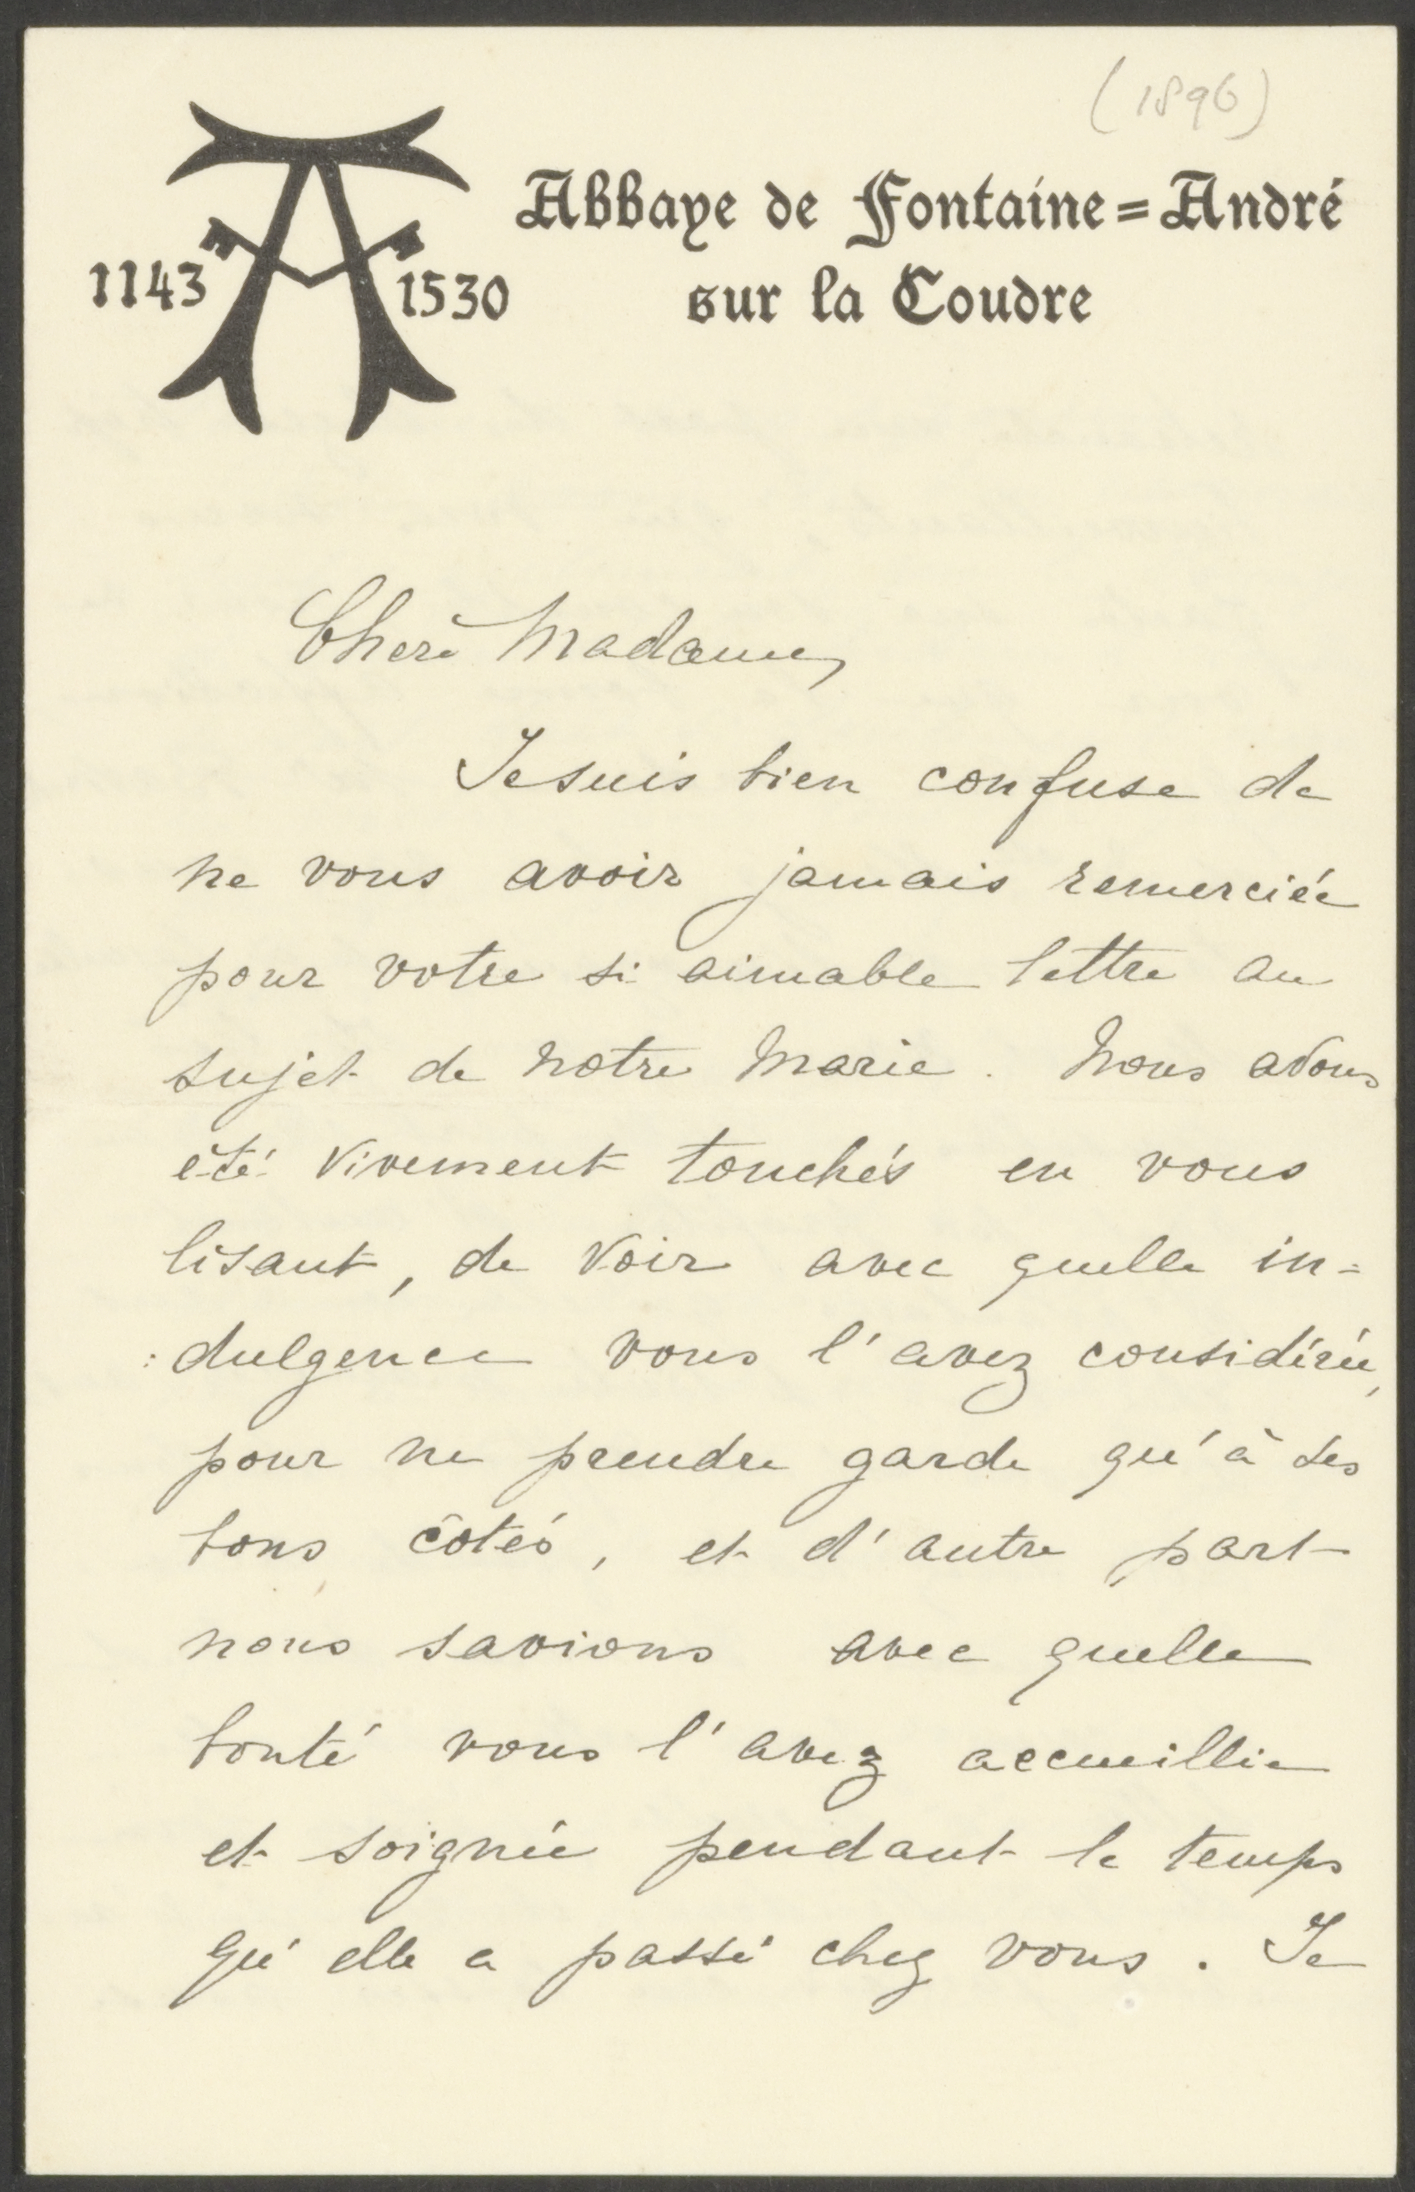 (1896)
Abbaye de Fontaine=André
sur la Coudre
1143 1530
Chère Madame,
Je suis bien confuse de
ne vous avoir jamais remerciée
pour votre si aimable lettre au
sujet de notre Marie. Nous avons
été vivement touchés en vous
lisant, de voir avec quelle in=
:dulgence vous l'avez considérée,
pour ne prendre garde qu'à ses
bons côtés, et d'autre part
nous savions avec quelle
bonté vous l'avez accueillie
et soignée pendant le temps
qu'elle a passé chez vous. Je